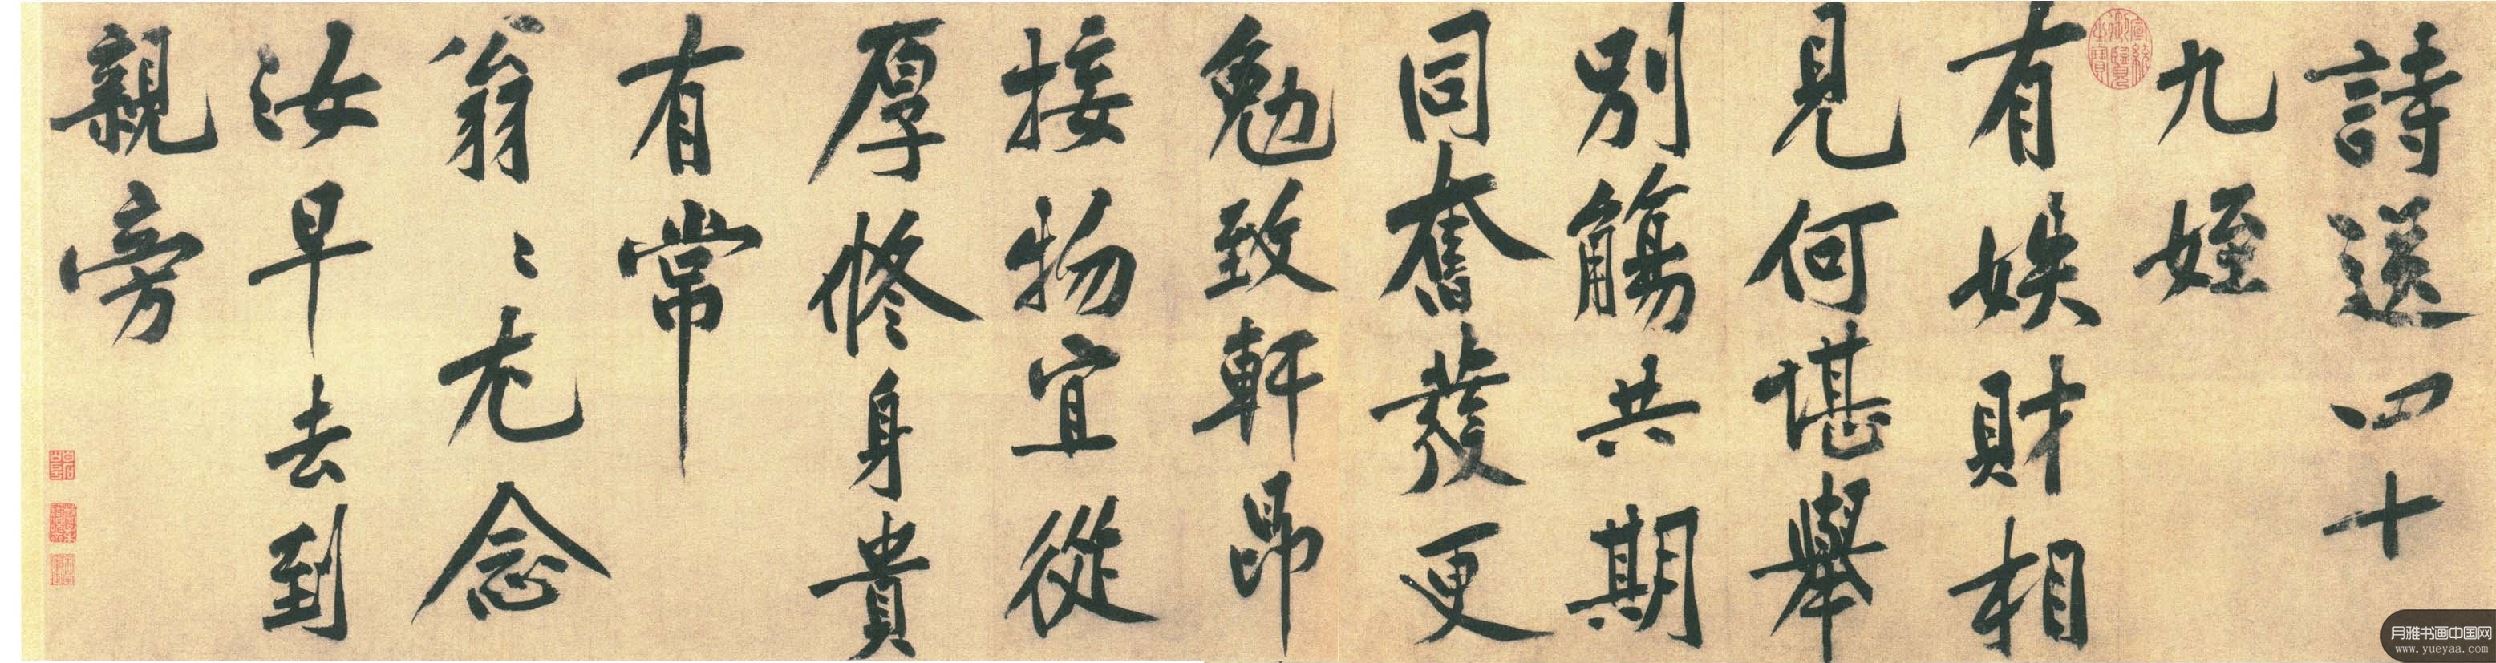 詩送四十
九姪
有娛財相
見何堪舉
別觴共期
同奮發更
勉致軒昂
接物宜從
厚修身貴
有常
翁〻尤念
汝早去到
親旁
宣統御覽之寶
月雅书画中国网
www.yueyaa.com